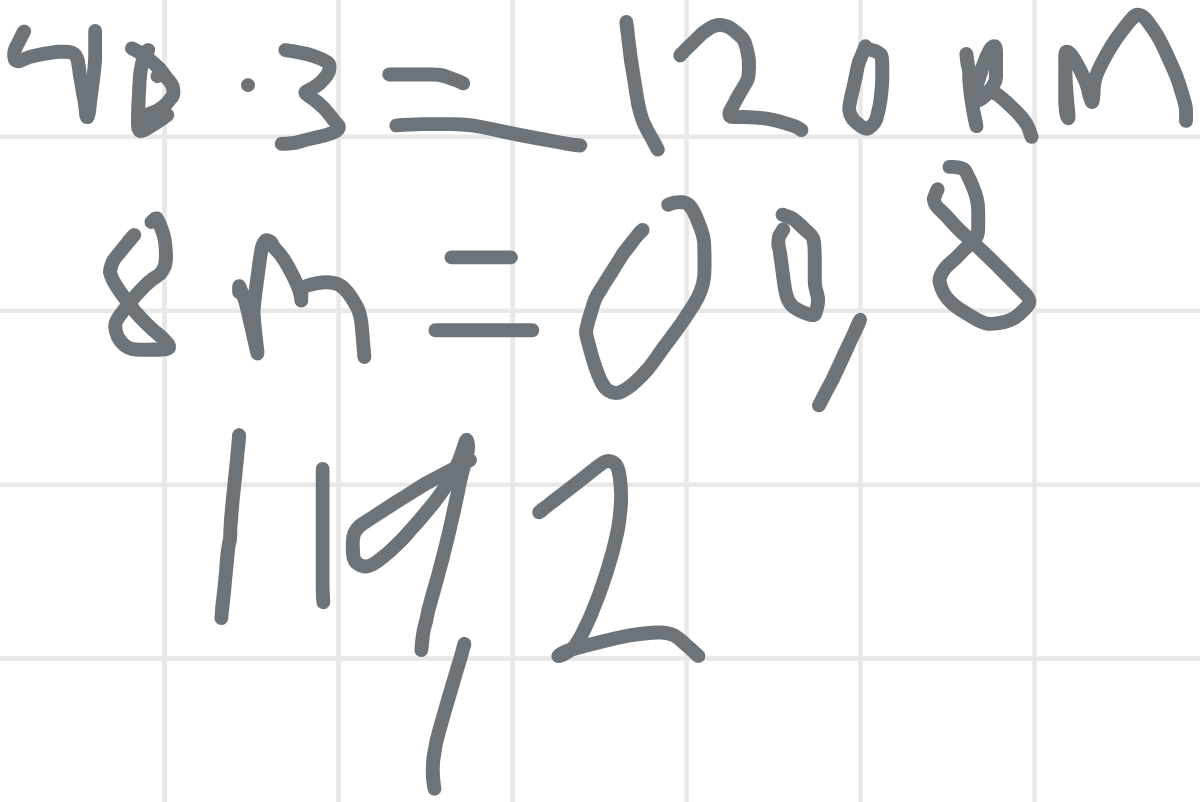 40 · 3 = 120 км
8 m = 00,8
119,2